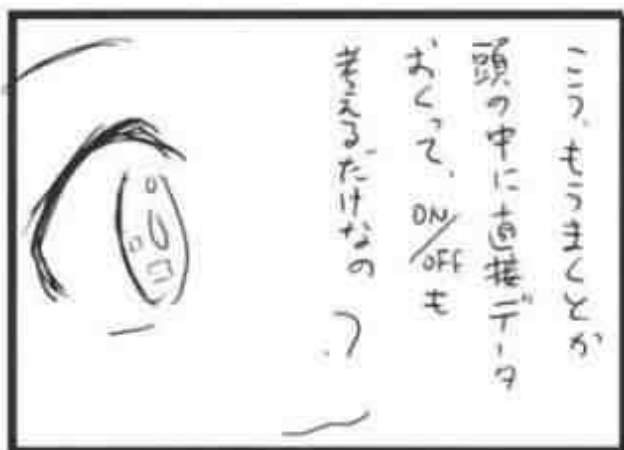 こう、もうまくとか
頭の中に直接データ
おくって、ON/OFFも
考えるだけなの?